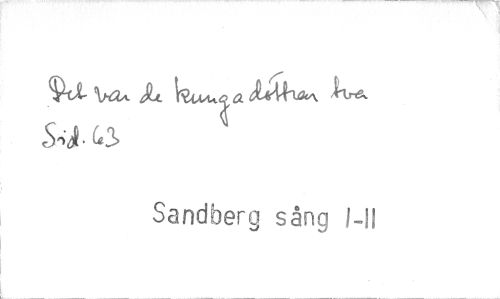 Det var de kungadöttrar två
Sid. 63
Sandberg sång I-II